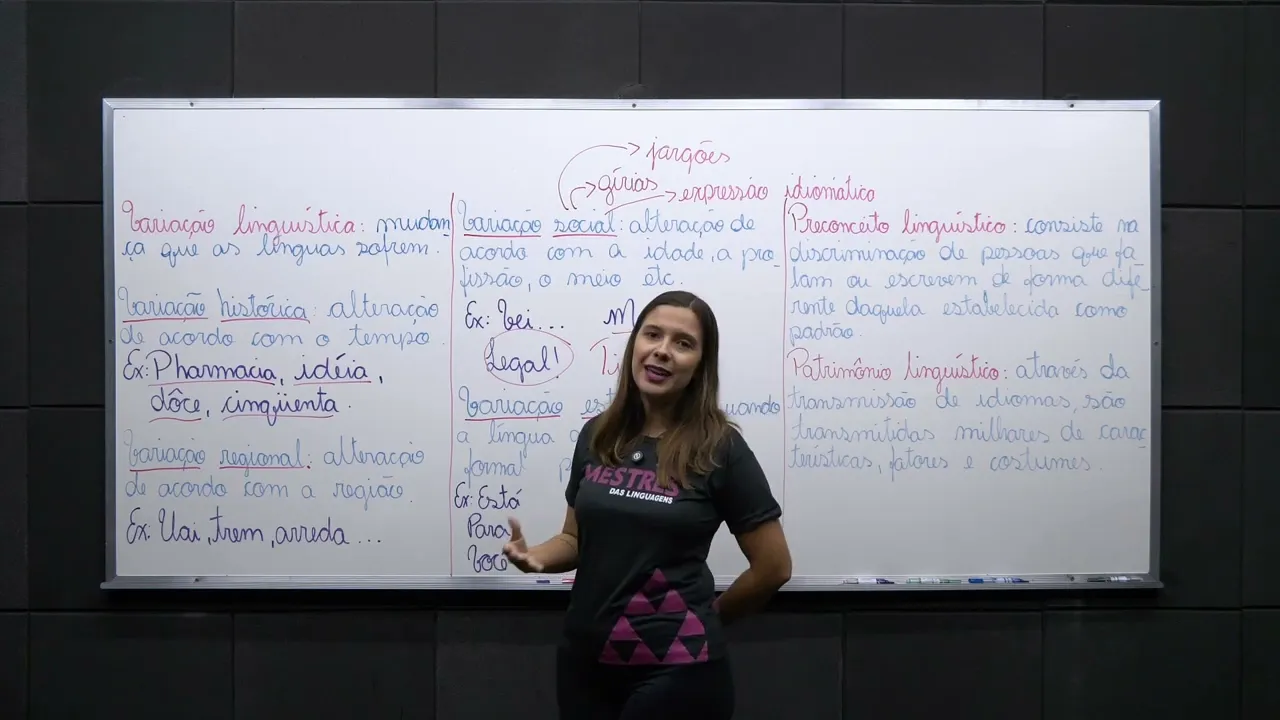 jargões
gírias
expressão idiomática
Variação linguística: mudan
ça que as línguas sofrem.
Variação histórica: alteração
de acordo com o tempo.
Ex: Pharmacia, idéia,
dôce, cinqüenta.
Variação regional: alteração
de acordo com a região.
Ex: Uai, trem, arreda...
Variação social: alteração de
acordo com a idade, a pro_
fissão, o meio etc.
Ex: Vei...
Legal!
Variação
uando
a língua
formal
Ex: Está
Para
Você
Preconceito linguístico: consiste na
discriminação de pessoas que fa_
lam ou escrevem de forma dife_
rente daquela estabelecida como
padrão.
Patrimônio linguístico: através da
transmissão de idiomas, são
transmitidas milhares de carac_
terísticas, fatores e costumes.
MESTRES
DAS LINGUAGENS